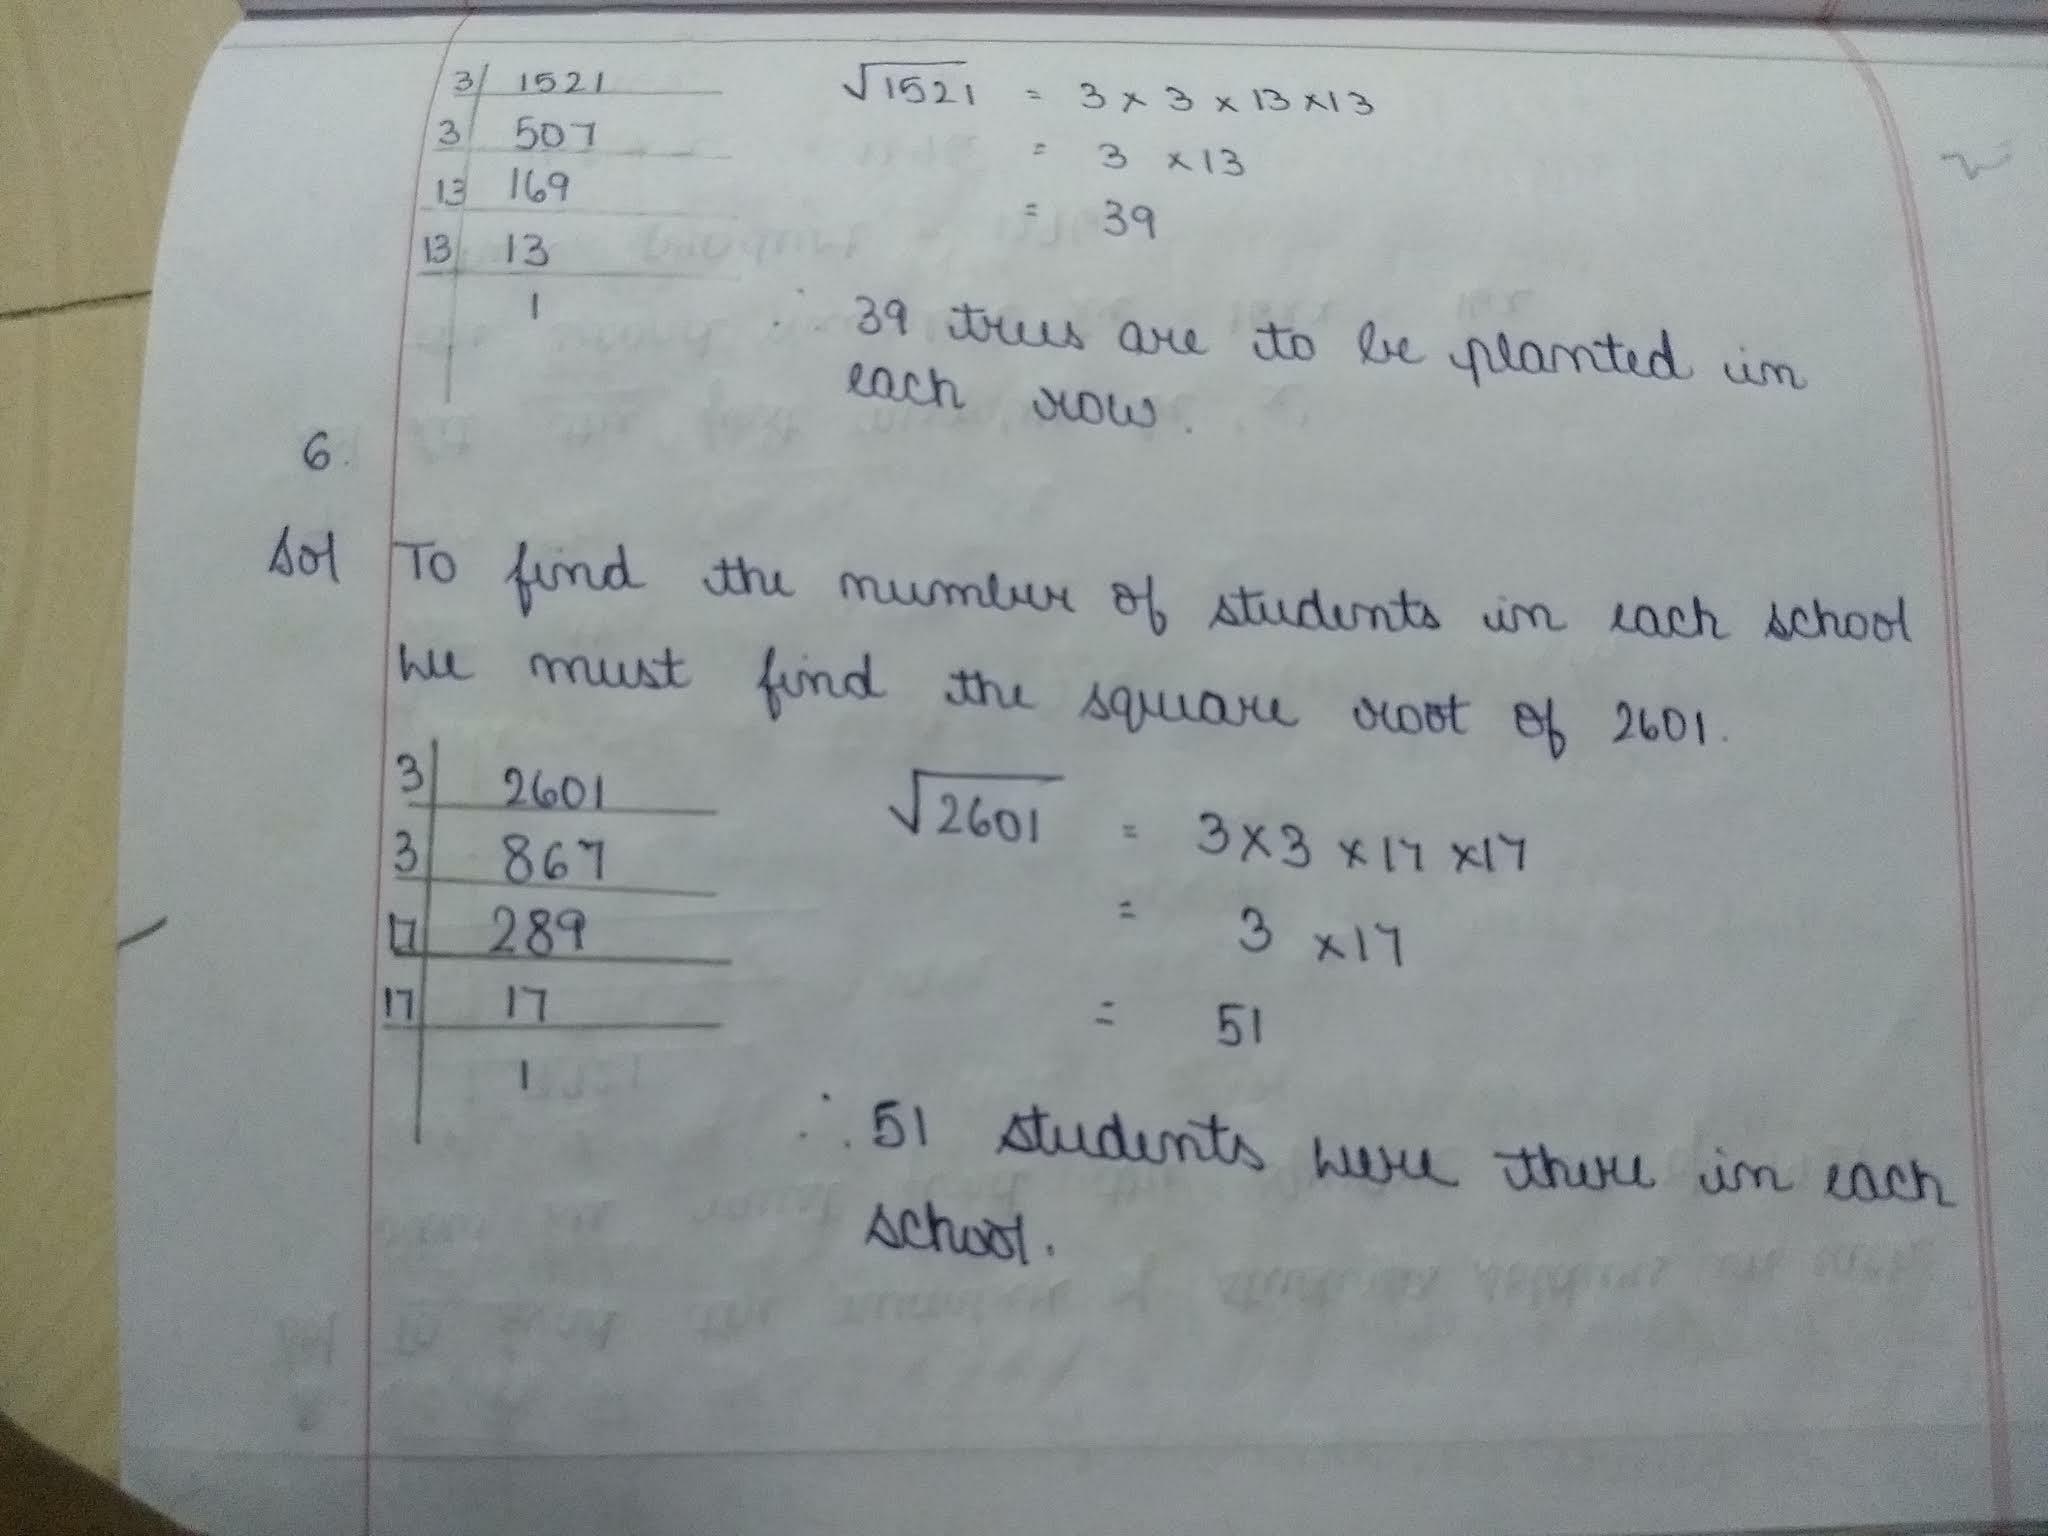 3 1521 √1521 = 3 × 3 × 13 × 13
3 507 = 3 × 13
13 169 = 39
13 13
1
∴ 39 trees are to be planted in
each row.
6.
Sol To find the number of students in each school
we must find the square root of 2601.
3 2601 √2601 = 3×3 × 17 ×17
3 867 = 3 ×17
17 289
17 17 = 51
1
∴ 51 students were there in each
school.